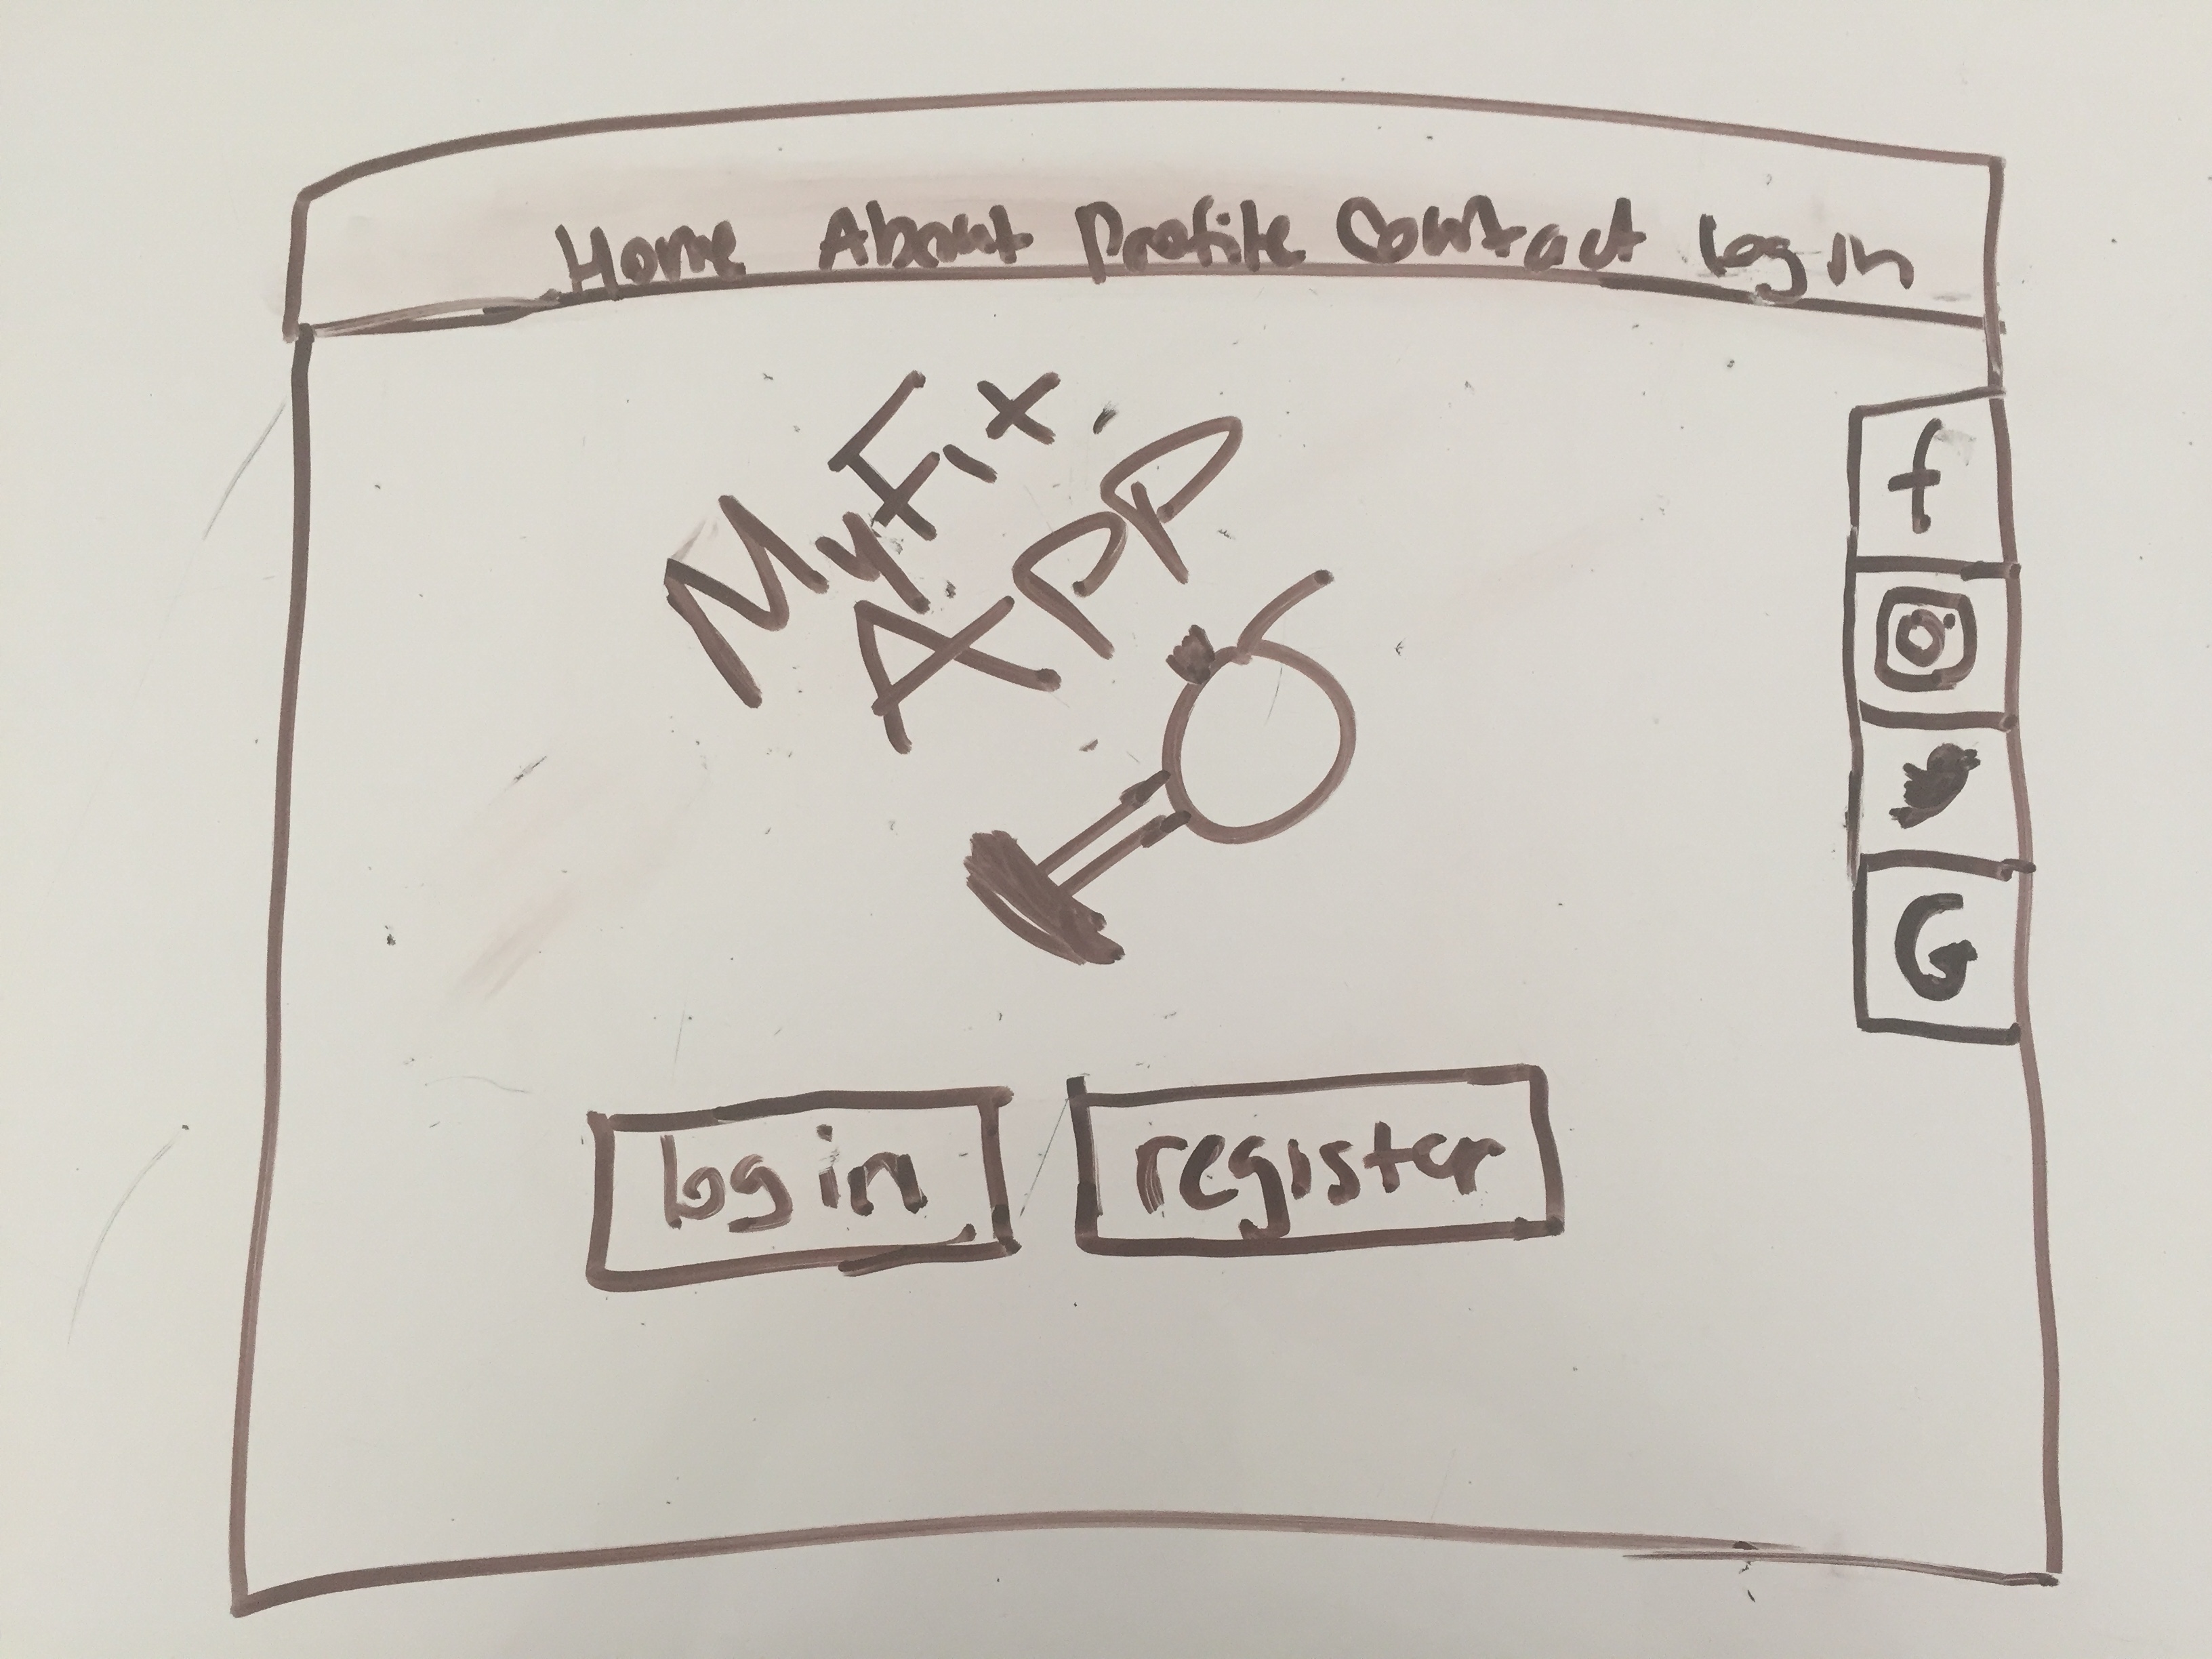 Home About Profile Contact log in
MyFix
APP
f
G
log in
register